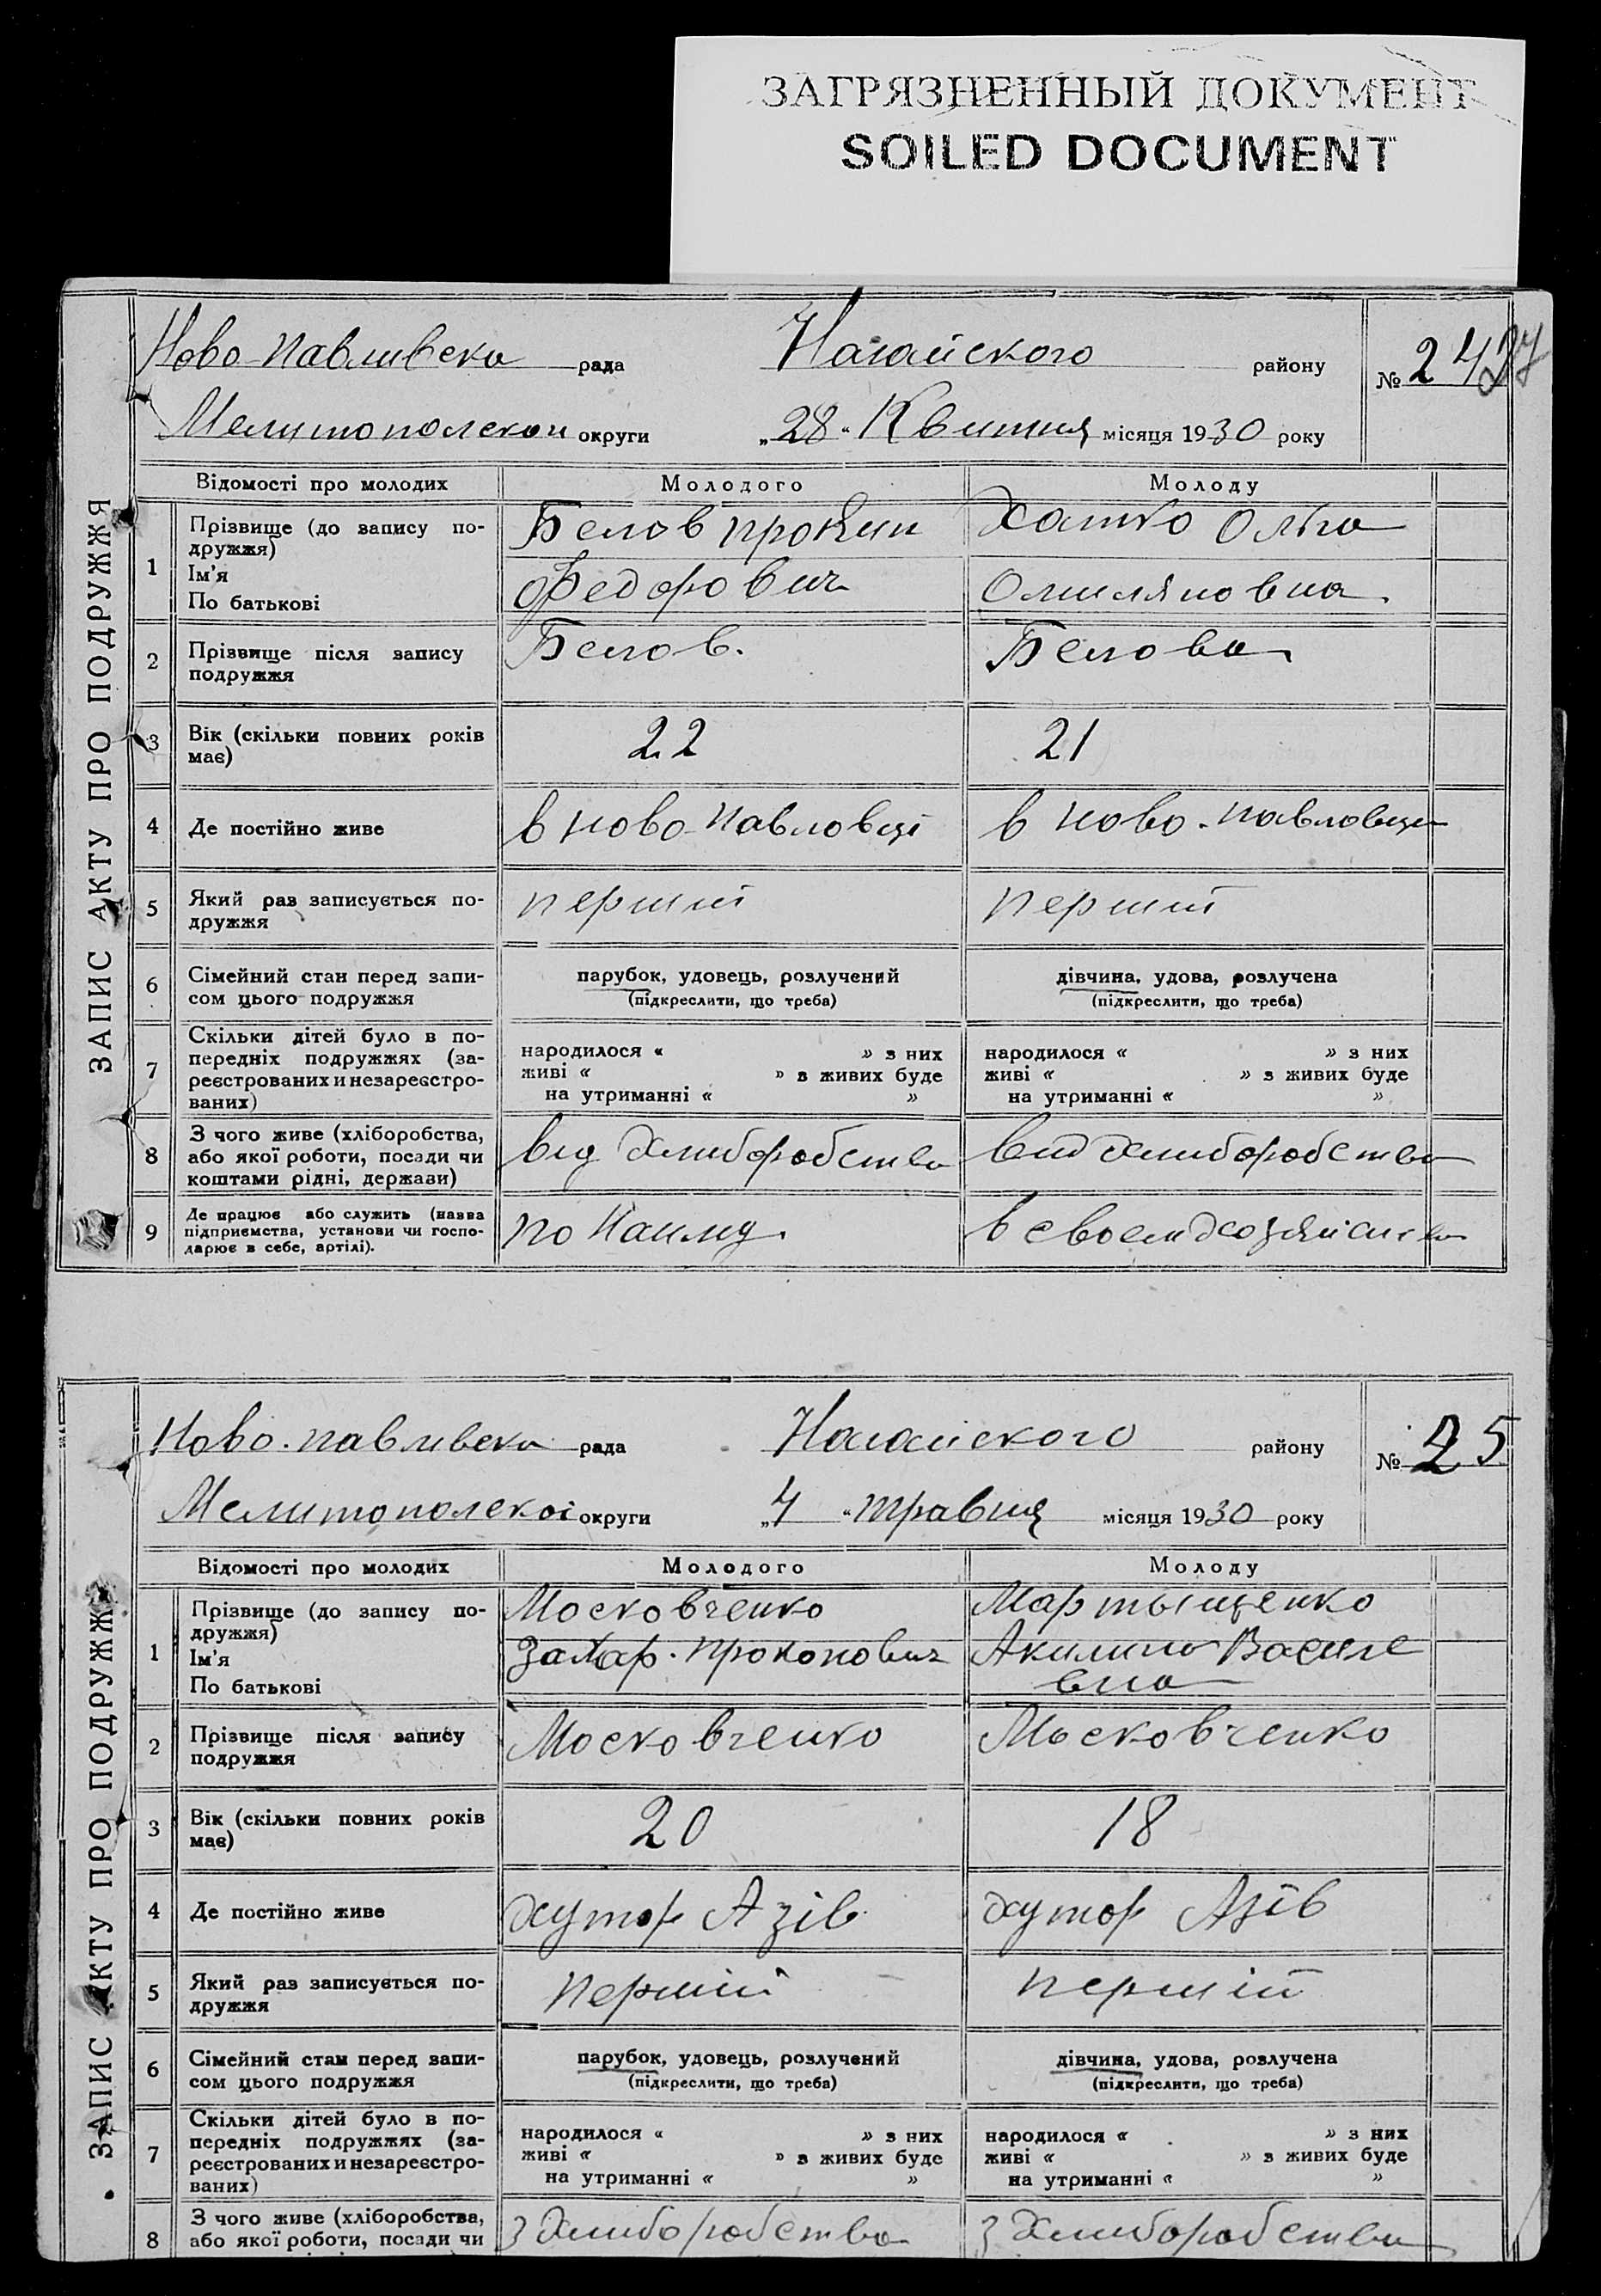 ЗАГРЯЗНЕННЫЙ ДОКУМЕНТ
SOILED DOCUMENT
ЗАПИС АКТУ ПРО ПОДРУЖЖЯ
Ново-Павливска рада Нагайского району № 24
Мелитополской округи „28“ Квитня місяця 1930 року
Відомості про молодих Молодого Молоду
1 Прізвище (до запису по-
дружжя)
Ім'я
По батькові
Белов Прокип
Федорович
Хатко Ольга
Омиляновна.
2 Прізвище після запису
подружжя
Белов. Белова
3 Вік (скільки повних років
має)
22 21
4 Де постійно живе в Ново-Павловці в Ново-Павловци
5 Який раз записується по-
дружжя
перший перший
6 Сімейний стан перед запи-
сом цього подружжя
парубок, удовець, розлучений
(підкреслити, що треба)
дівчина, удова, розлучена
(підкреслити, що треба)
7 Скільки дітей було в по-
передніх подружжях (за-
реєстрованих и незареєстро-
ваних)
народилося « » з них
живі « » з живих буде
на утриманні « »
народилося « » з них
живі « » з живих буде
на утриманні « »
8 З чого живе (хліборобства,
або якої роботи, посади чи
коштами рідні, держави)
від хлиборобства вид хлиборобства
9 Де працює або служить (назва
підприємства, установи чи госпо-
дарює в себе, артілі).
по найму. в своем хозяйстви
ЗАПИС АКТУ ПРО ПОДРУЖЖЯ
Ново-Павливска рада Нагайского району № 25
Мелитополской округи „4“ травня місяця 1930 року
Відомості про молодих Молодого Молоду
1 Прізвище (до запису по-
дружжя)
Ім'я
По батькові
Московченко
Захар. Прокопович
Мартыщенко
Акилина Василе
вна
2 Прізвище після запису
подружжя
Московченко Московченко
3 Вік (скільки повних років
має)
20 18
4 Де постійно живе хутор Азів хутор Азів
5 Який раз записується по-
дружжя
перший перший
6 Сімейний стан перед запи-
сом цього подружжя
парубок, удовець, розлучений
(підкреслити, що треба)
дівчина, удова, розлучена
(підкреслити, що треба)
7 Скільки дітей було в по-
передніх подружжях (за-
реєстрованих и незареєстро-
ваних)
народилося « » з них
живі « » з живих буде
на утриманні « »
народилося « » з них
живі « » з живих буде
на утриманні « »
8 З чого живе (хліборобства,
або якої роботи, посади чи
з хлиборобства з хлиборобства